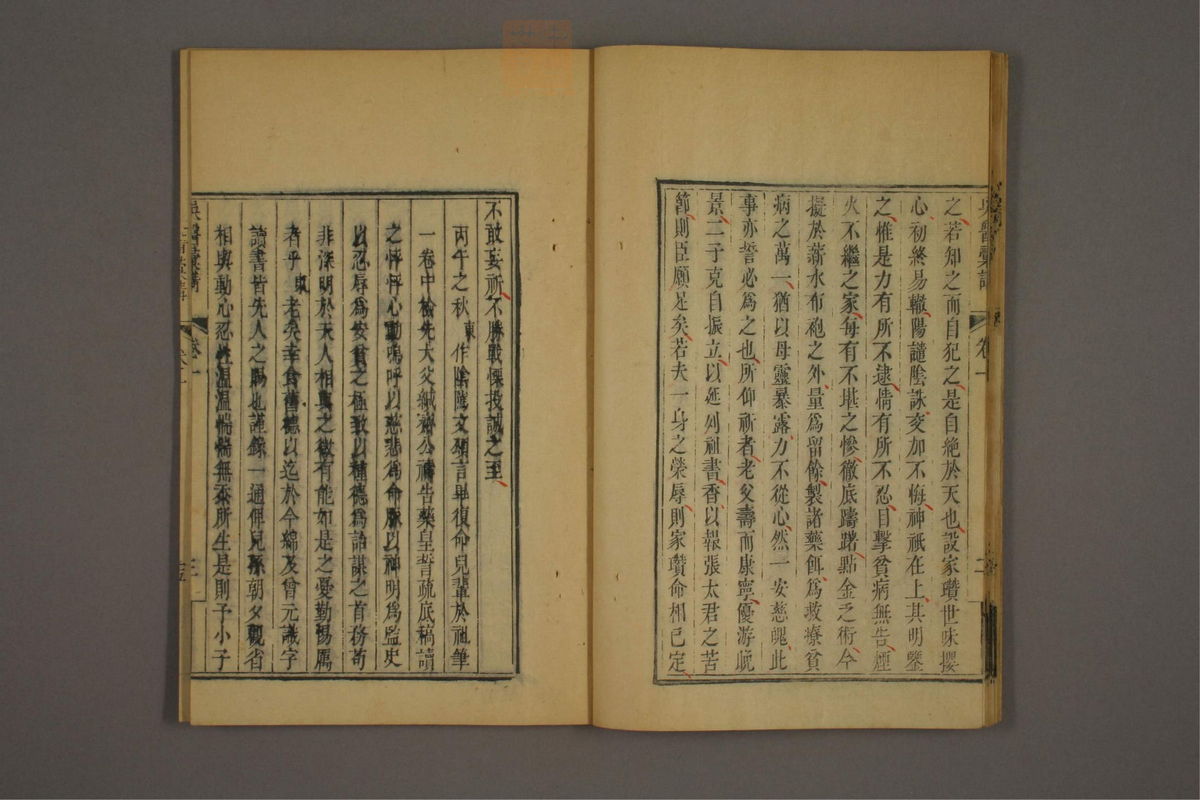 之若知之而自犯之是自絶於天也設家瓚世味攖
心初終易轍陽譴陰誅交加不悔神祇在上其明鑒
之惟是力有所不逮情有所不忍目擊貧病無告煙
火不繼之家每有不堪之慘徹底躊躇點金乏術今
擬於薪水布袍之外量爲留餘製諸藥餌爲救療貧
病之萬一猶以母靈暴露力不從心然一安慈魄此
事亦誓必爲之也所仰祈者老父壽而康寧優游晚
景二子克自振立以延列祖書香以報張太君之苦
節則臣願足矣若夫一身之榮辱則家瓚命相已定
吳醫彙講 卷一
不敢妄祈不勝戰慄投誠之至
丙午之秋東作陰隲文頌言畢復命兒輩於祖筆
一卷中檢先大父緘齋公禱告藥皇誓疏底稿讀
之怦怦心動嗚呼以慈悲爲命脈以神明爲監史
以忍辱爲安貧之極致以種德爲詒謀之首務苟
非深明於天人相與之微有能如是之憂勤惕厲
者乎東老矣幸食舊德以迄於今綿及曾元識字
讀書皆先人之賜也謹錄一通俾兒孫朝夕觀省
相與動心忍性温温惴惴無忝所生是則予小子
吳醫彙講 卷一